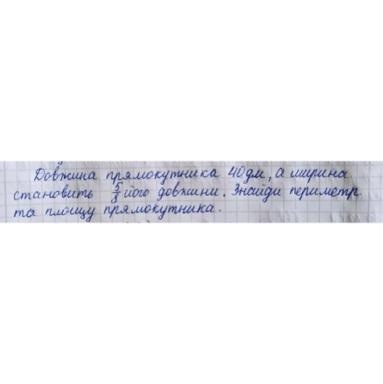 Довжина прямокутника 40 дм, а ширина
становить 5/8 його довжини. Знайди периметр
та площу прямокутника.